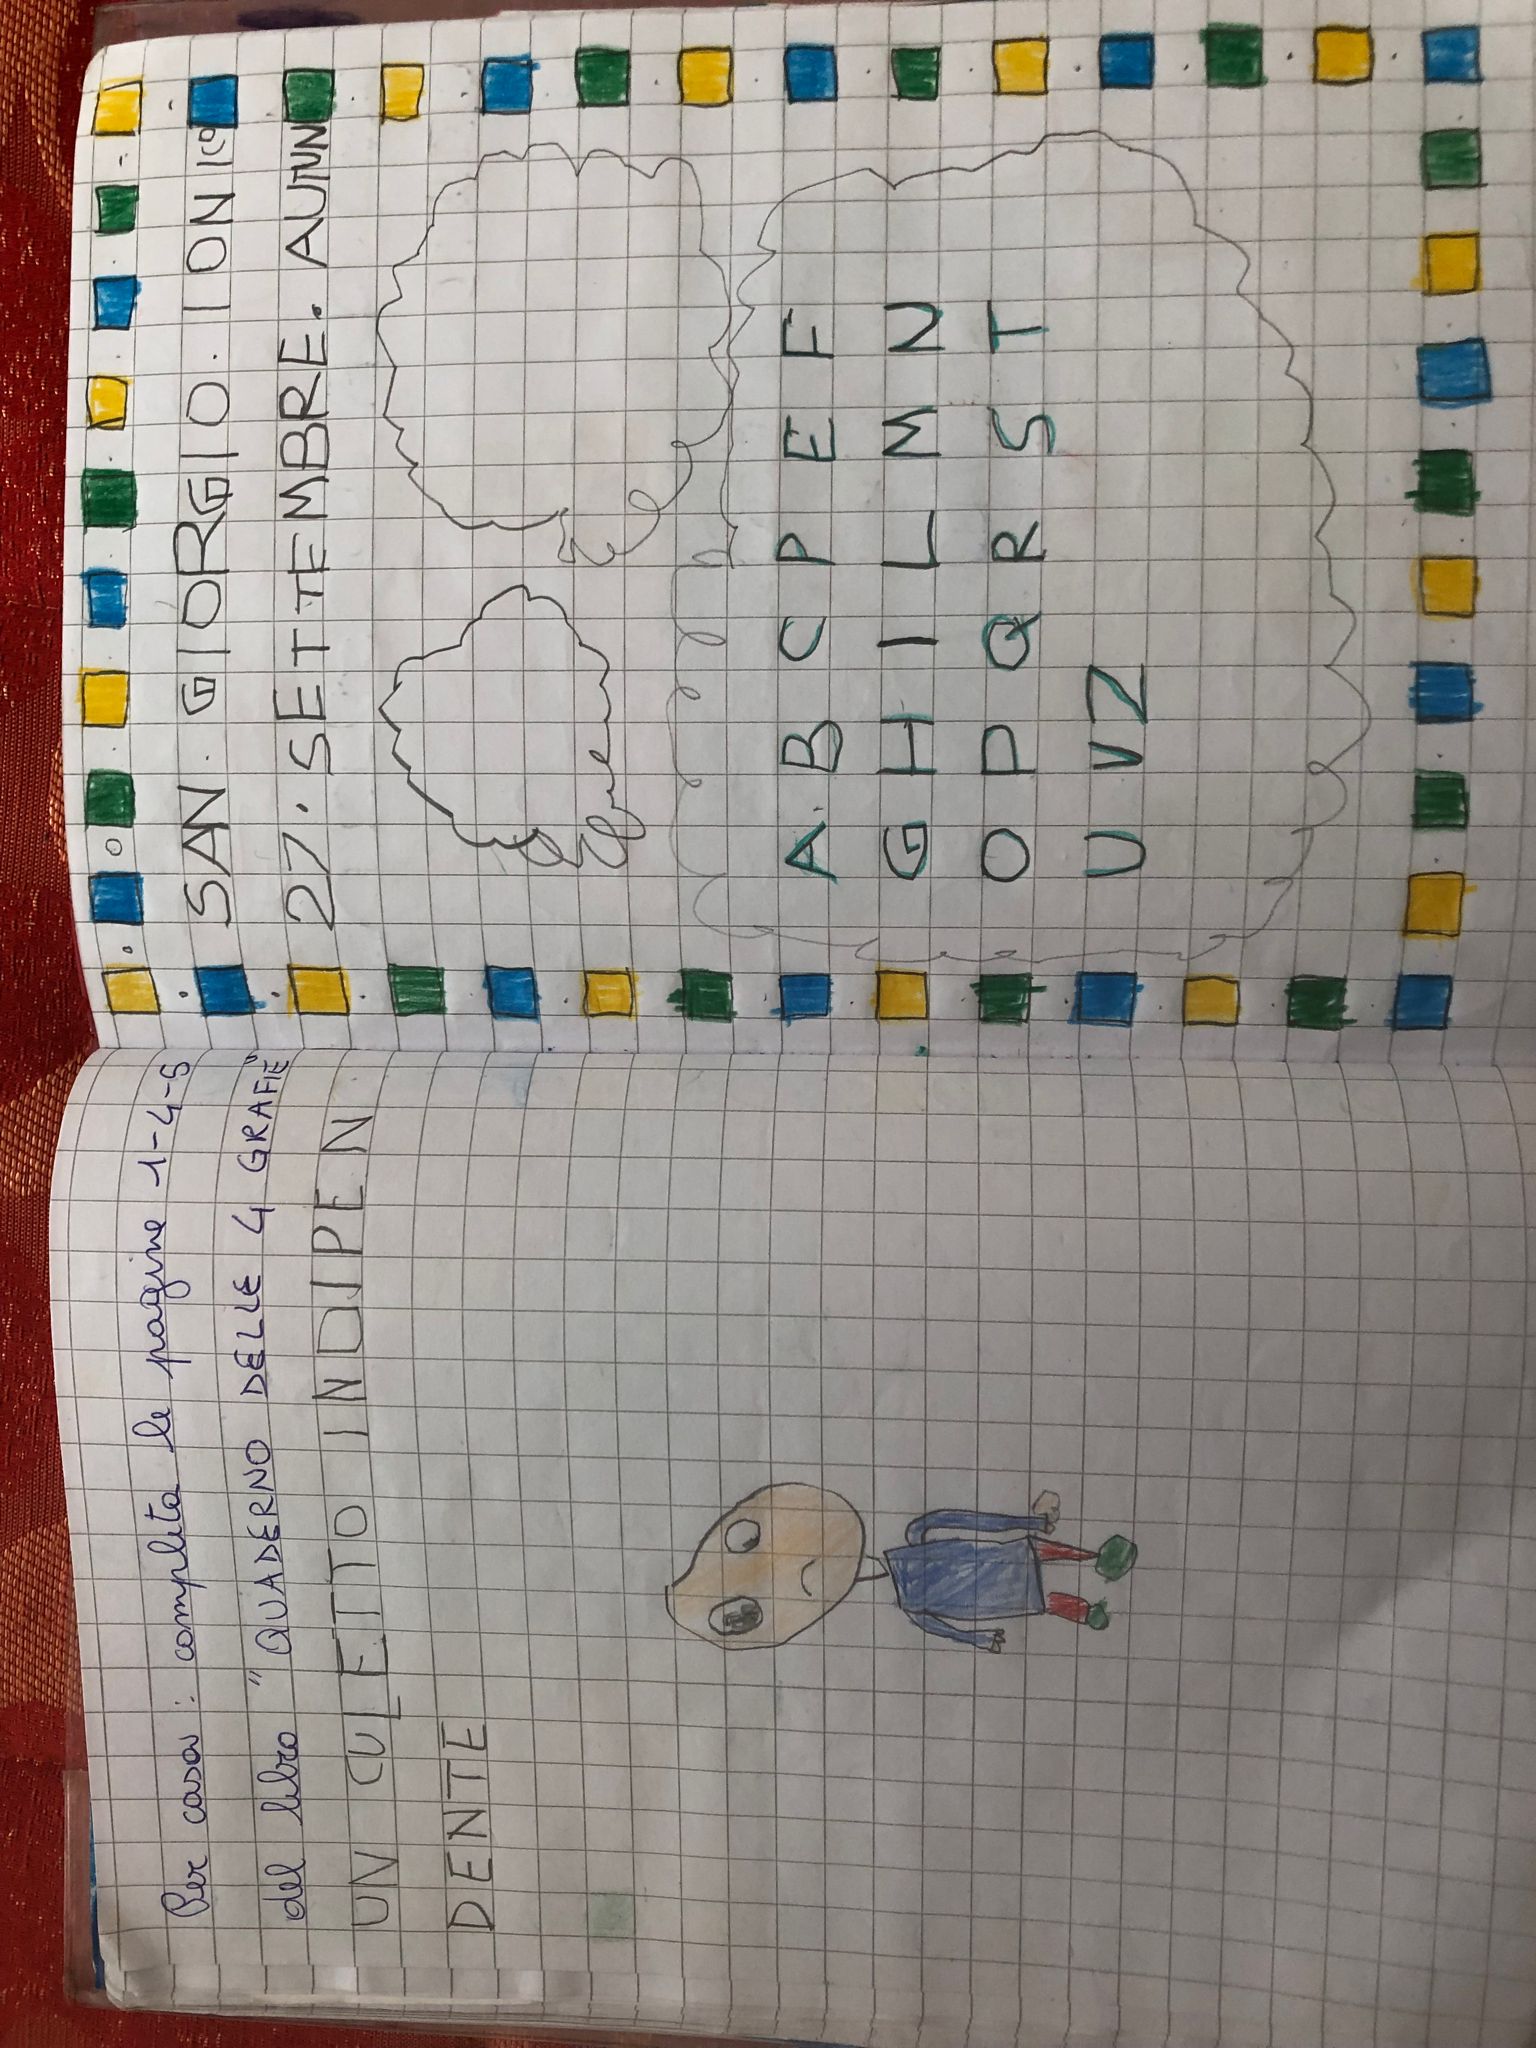 Per casa: completa le pagine 1-4-5
del libro "QUADERNO DELLE 4 GRAFIE"
UN CULETTO INDIPEN
DENTE
SAN. GIORGIO. IONICO
27. SETTEMBRE. AUTUN
A B C P E F
G H I L M N
O P Q R S T
U V Z